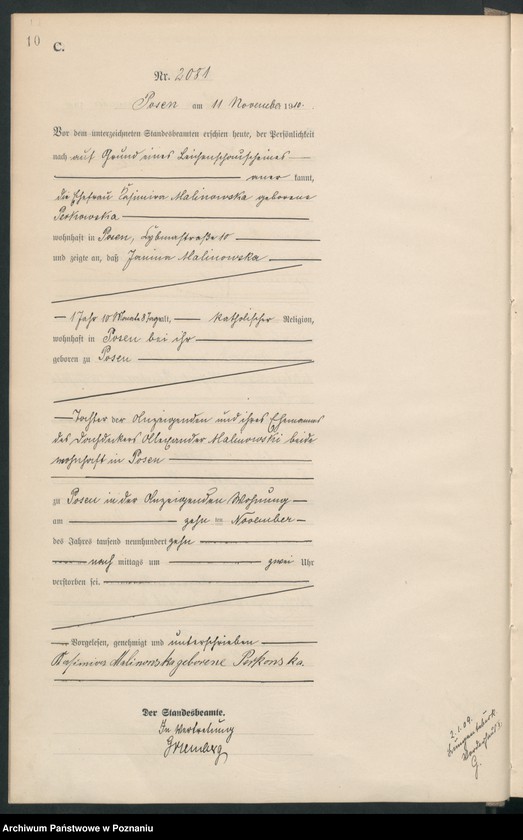 10
C.
Nr. 2081
Posen am 11 November 1910.
Vor dem unterzeichneten Standesbeamten erschien heute, der Persönlichkeit
nach auf Grund eines Leichenschauscheines
aner kannt,
die Ehefrau Casimira Malinowska geborene
wohnhaft in Posen, 10
und zeigte an, daß Janina Malinowska
1 Jahr 10 Monate 8 Tage alt, katholischer Religion,
wohnhaft in Posen bei ihr
geboren zu Posen
Tochter der Anzeigenden und ihres Ehemannes
des Dachdeckers Alexander Malinowski beide
wohnhaft in Posen
zu Posen in der Anzeigenden Wohnung
am zehn ten November
des Jahres tausend neunhundert zehn
nach mittags um zwei Uhr
verstorben sei.
Vorgelesen, genehmigt und unterschrieben
Kasimira Malinowska geborene
Der Standesbeamte.
In Vertretung
2.1.09.
G.
Archiwum Państwowe w Poznaniu